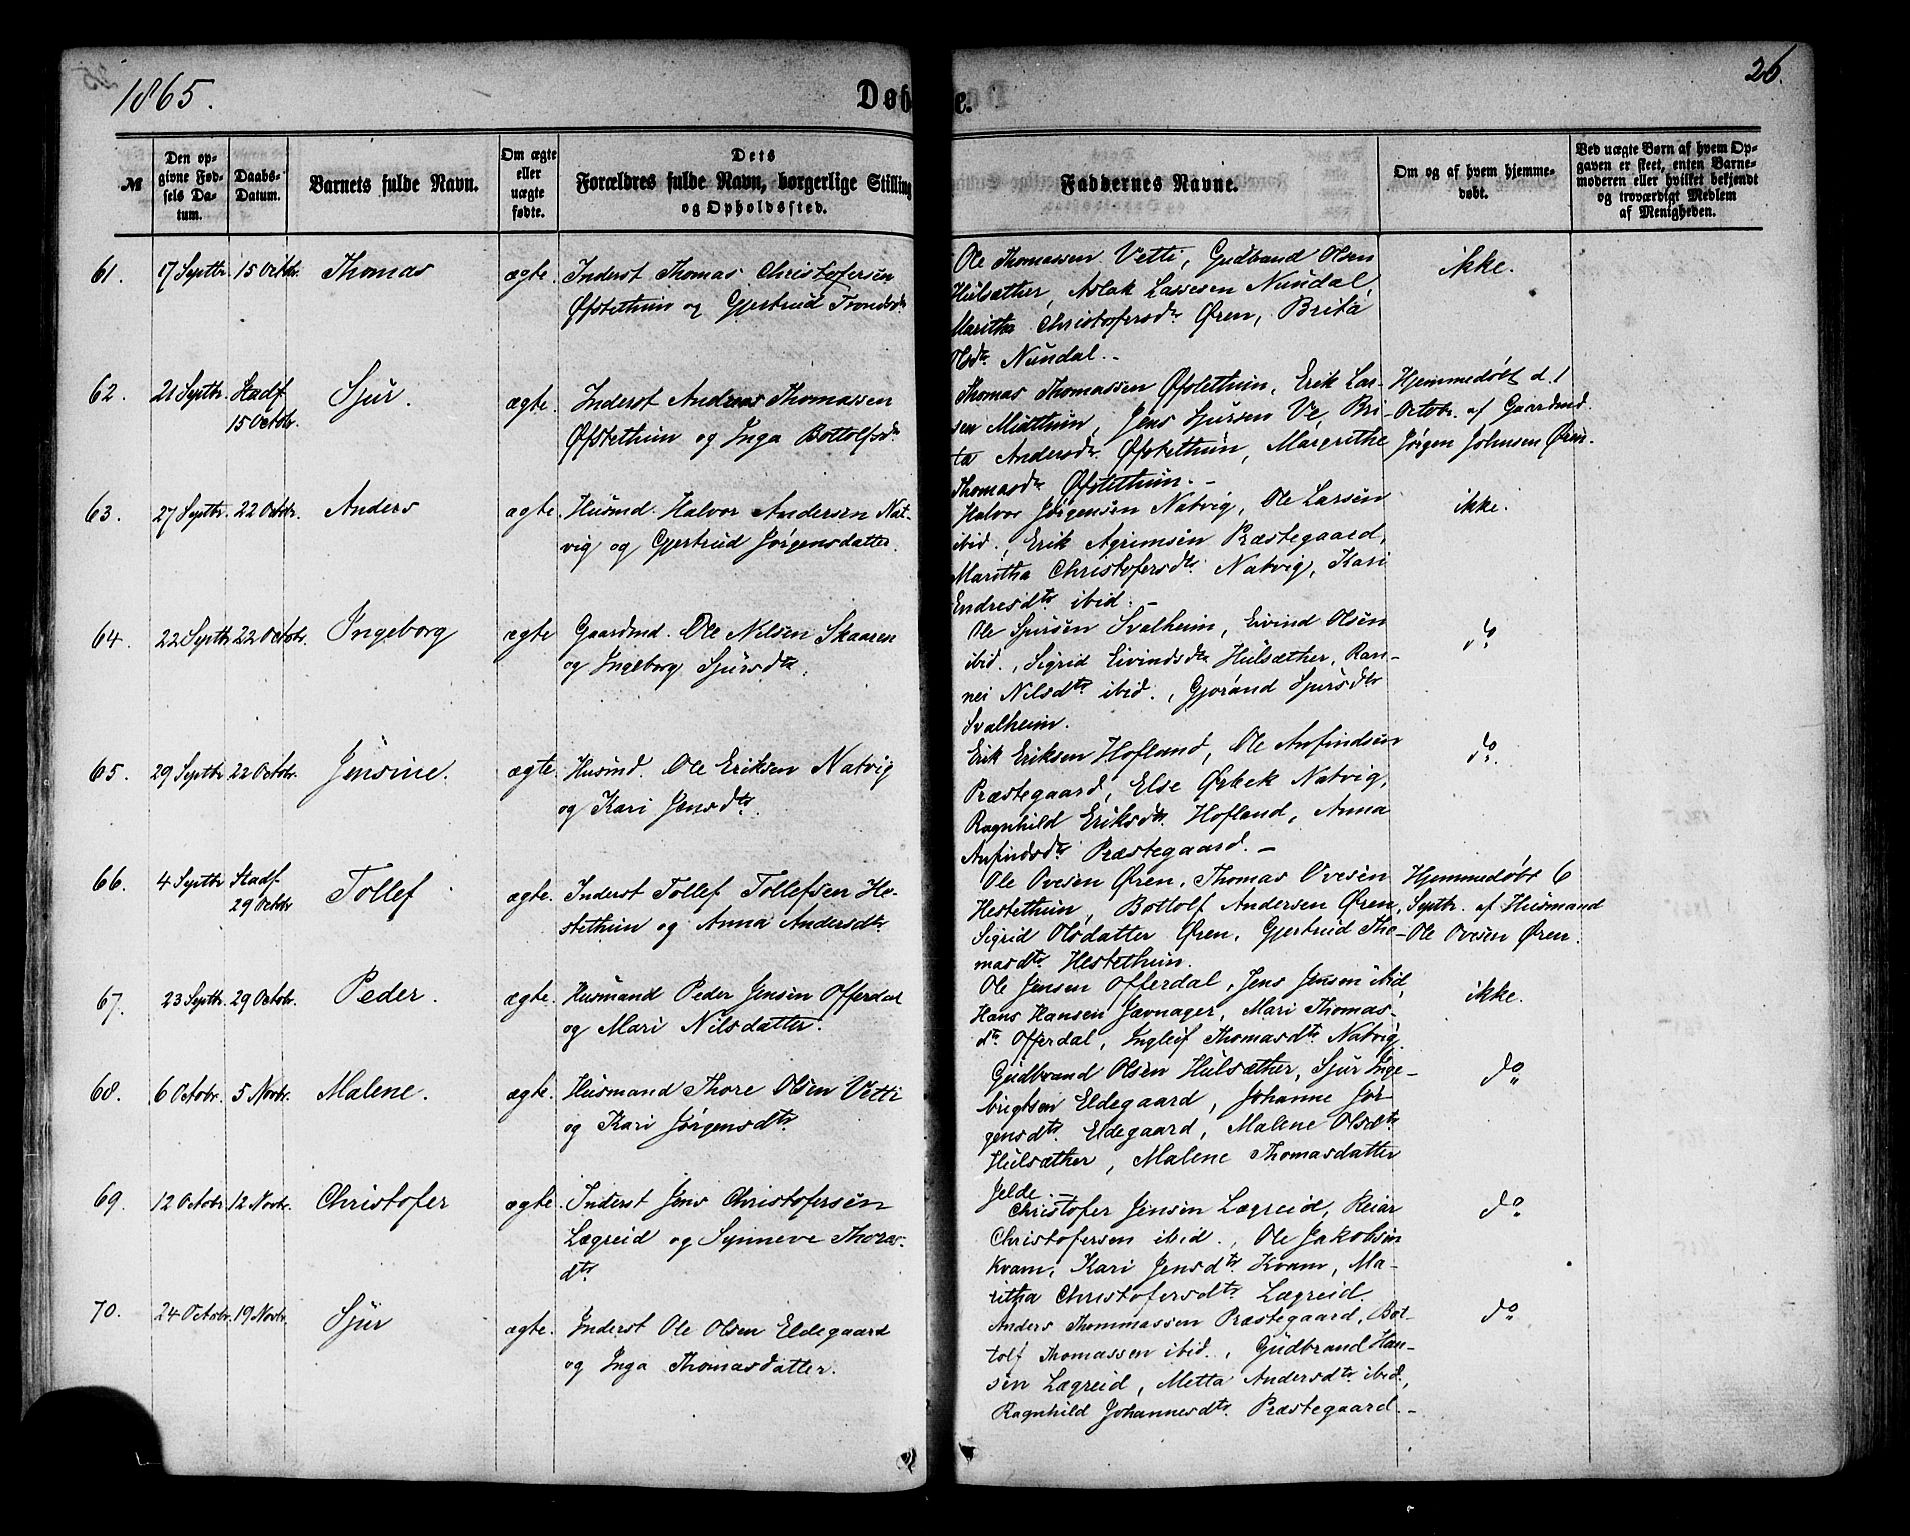 1865.
Døbte.
26.
№
Den op-
givne Fød-
sels Da-
tum.
Daabs-
Datum.
Barnets fulde Navn.
Om ægte
eller
uægte
fødte.
Dets
Forældres fulde Navn, borgerlige Stilling
og Opholdssted.
Faddernes Navne.
Om og af hvem hjemme-
døbt.
Ved uægte Børn af hvem Op-
gaven er skeet, enten Barne-
moderen eller hvilket bekjendt
og troværdigt Medlem
af Menigheden.
61. 17 Septbr. 15 Octbr. Thomas ægte. Inderst Thomas Christofersen
Øfstethun og Gjertrud Trondsdr
Ole Thomassen Vetti, Gudbrand Olsen
Hulsæther, Aslak Lassesen Nundal,
Maritha Christofersdtr Øren, Brita
Olsdtr Nundal.-
ikke.
62. 21 Septbr. Stadf
15 Octobr. Sjur. ægte. Inderst Andreas Thomassen
Øfstethun og Inga Bottolfsdr
Thomas Thomassen Øfstethun, Erik Lar-
sen Midthun, Jens Sjursen Ve, Bri-
ta Andersdtr. Øfstethun, Margrethe
Thomasdtr Øfstethun.-
Hjemmedøbt d. 1
Octobr. af Gaardmd.
Jørgen Johnsen Øren.
63. 27 Septbr. 22 Octbr. Anders ægte. Husmd. Halvor Andersen Nat-
vig og Gjertrud Jørgensdatter.
Halvor Jørgensen Natvig, Ole Larsen
ibid., Erik Agrimsen Præstegaard,
Maritha Christofersdtr Natvig, Kari
Endresdtr ibid.-
ikke.
64. 22 Septbr 22 Octobr. Ingeborg ægte Gaardmd. Ole Nilsen Skaaren
og Ingeborg Sjursdtr.
Ole Sjursen Svalheim, Eivind Olsen
ibid., Sigrid Eivindsdtr Hulsæther, Ran-
nei Nilsdtr ibid., Gjøránd Sjursdtr
Svalheim.
do
65. 29 Septbr 22 Octobr. Jensine. ægte. Husmd. Ole Eriksen Natvig
og Kari Jensdtr.
Erik Eriksen Hofland, Ole Anfindsen
Præstegaard, Else Ørbek Natvig,
Ragnhild Eriksdtr Hofland, Anna
Anfindsdtr Præstegaard.-
do.
66. 4 Septbr Stadf.
29 Octbr Tollef ægte. Inderst Tollef Tollefsen He-
stethun og Anna Andersdtr
Ole Ovesen Øren, Thomas Ovesen
Hestethun, Bottolf Andersen Øren,
Sigrid Olsdatter Øren, Gjertrud Tho-
masdtr. Hestethun.
Hjemmedøbt 6
Septbr. af Husmand
Ole Ovesen Øren.
67. 23 Septbr. 29 Octobr. Peder. ægte. Husmand Peder Jensen Offerdal
og Mari Nilsdatter.
Ole Jensen Offerdal, Jens Jensen ibid,
Hans Hansen Jævnager, Mari Thomas-
dtr Offerdal, Ingleif Thomasdtr Natvig.
ikke.
68. 6 Octobr. 5 Novbr. Malene. ægte. Husmand Thore Olsen Vetti
og Kari Jørgensdtr.
Gudbrand Olsen Hulsæther, Sjur Inge-
brigtsen Eldegaard, Johanne Jør-
gensdtr. Eldegaard, Malene Olsdtr
Hulsæther, Malene Thomasdatter
Jelde.-
do
69. 12 Octobr 12 Novbr. Christofer ægte. Inderst Jens Christofersen
Lægreid og Synneve Thoras-
dtr.
Christofer Jensen Lægreid, Reiar
Christofersen ibid., Ole Jakobsen
Kvam, Kari Jensdtr Kvam, Ma-
ritha Christofersdtr Lægreid.
do
70. 24 Octobr. 19 Novbr. Sjur ægte. Inderst Ole Olsen Eldegaard
og Inga Thomasdatter.
Anders Thommassen Præstegaard, Bot-
tolf Thomassen ibid., Gudbrand Han-
sen Lægreid, Metta Andersdtr ibid.,
Ragnhild Johannesdtr Præstegaard.-
do